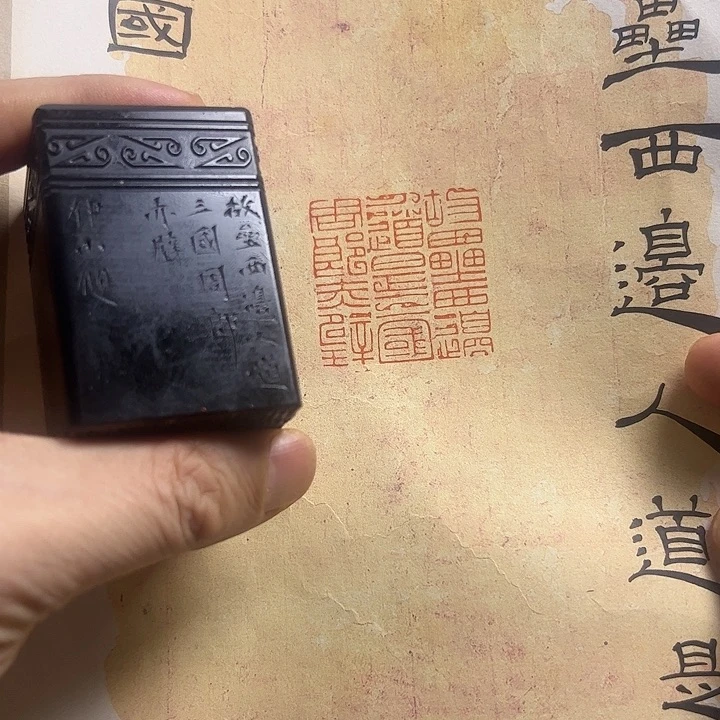 壘西邊人道是
故壘西邊
人道是三國
周郎赤壁
國
故壘西邊人道
三國周郎
赤壁